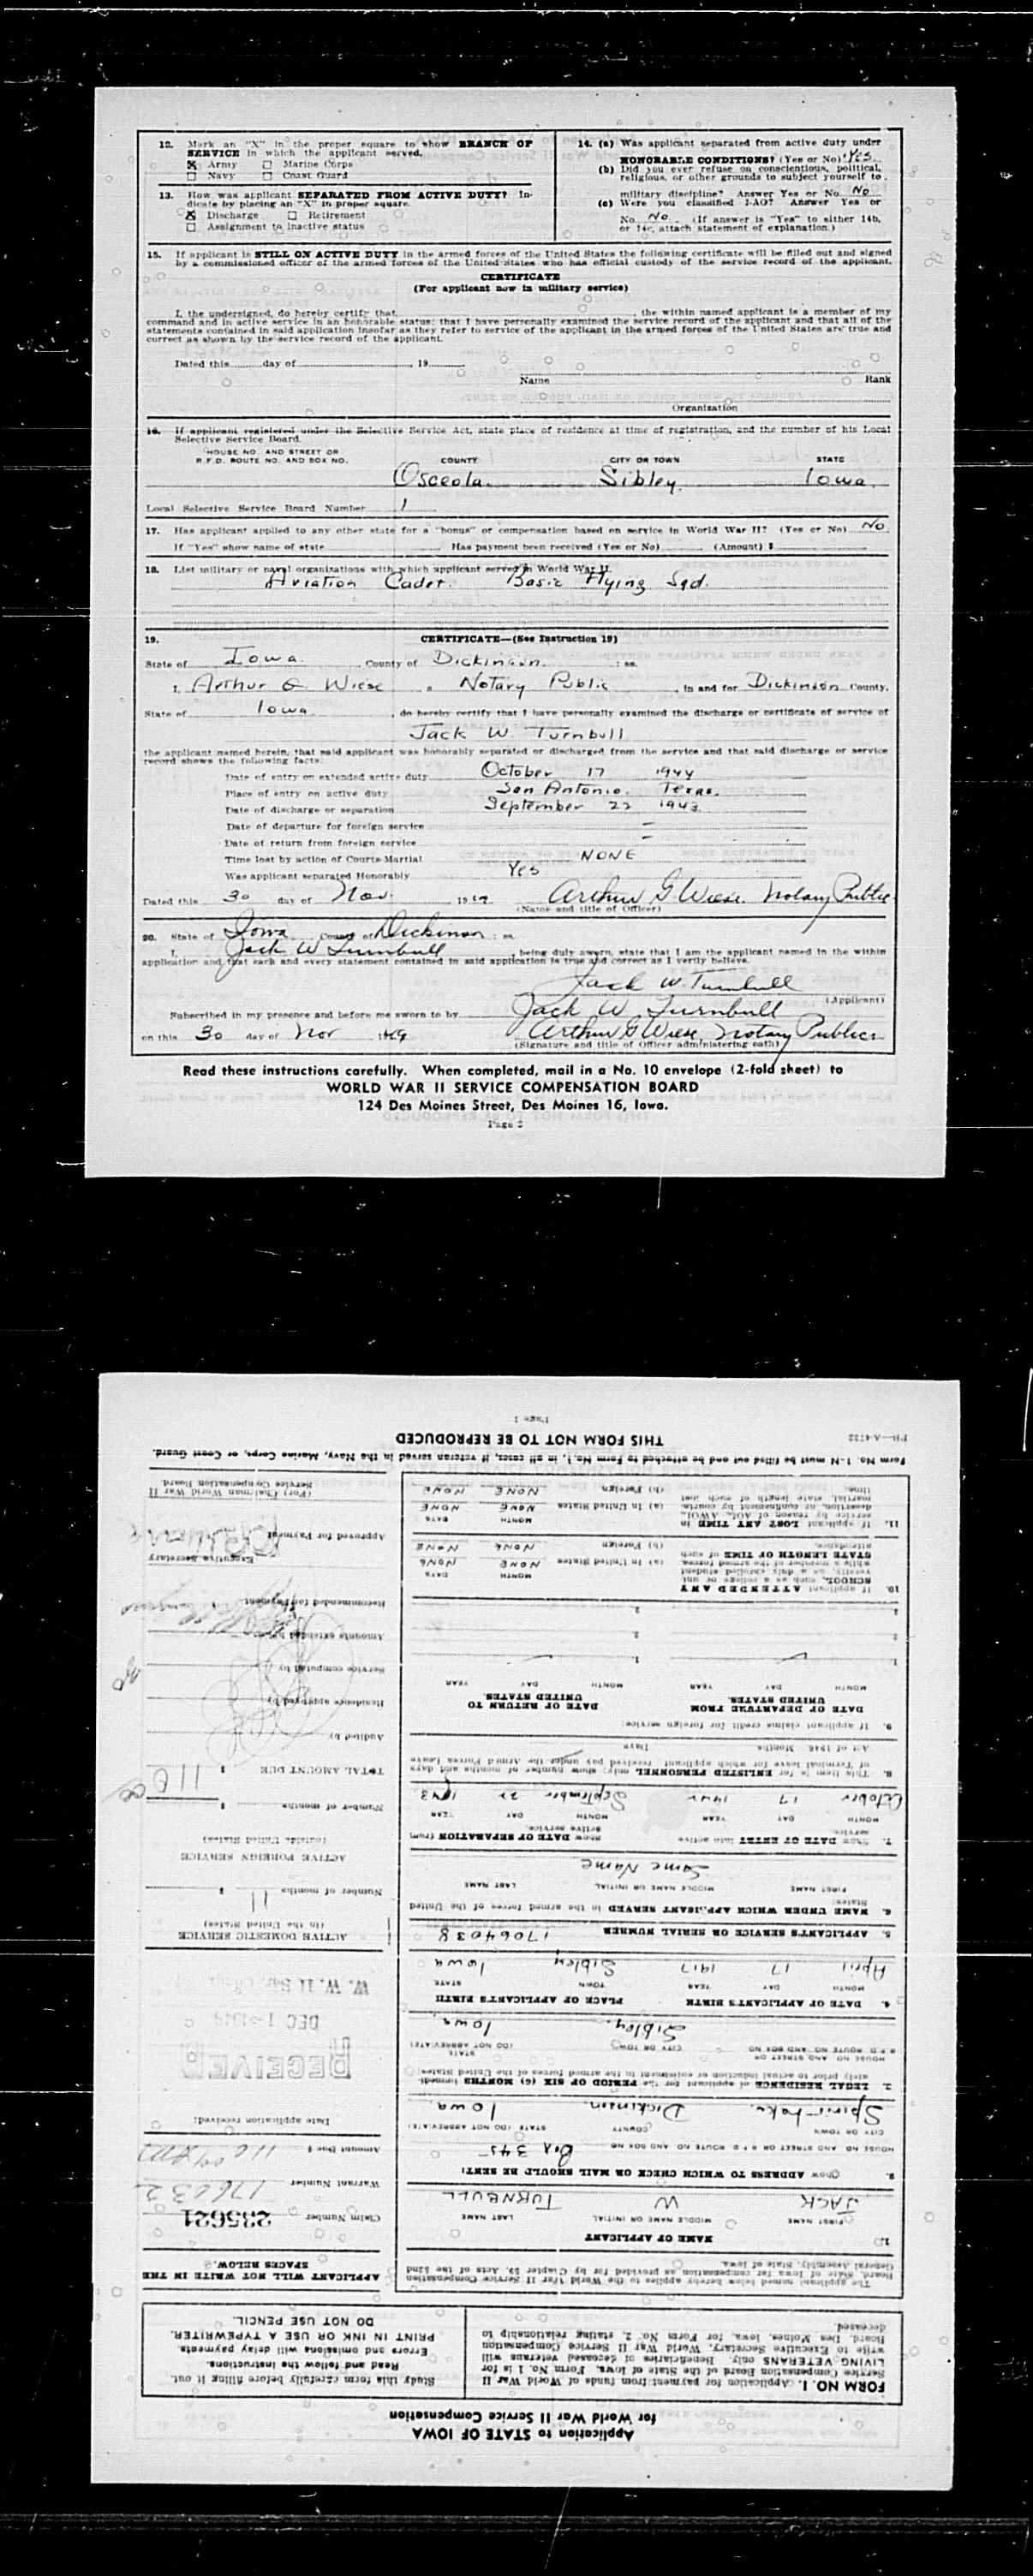 12. Mark an "X" in the proper square to show BRANCH OF
SERVICE in which the applicant served.
☒ Army ☐ Marine Corps
☐ Navy ☐ Coast Guard
13. How was applicant SEPARATED FROM ACTIVE DUTY? In-
dicate by placing an "X" in proper square.
☒ Discharge ☐ Retirement
☐ Assignment to inactive status
14. (a) Was applicant separated from active duty under
HONORABLE CONDITIONS? (Yes or No) Yes
(b) Did you ever refuse on conscientious, political,
religious, or other grounds to subject yourself to
military discipline? Answer Yes or No No
(c) Were you classified I-AO? Answer Yes or
No No (If answer is "Yes" to either 14b,
or 14c, attach statement of explanation.)
15. If applicant is STILL ON ACTIVE DUTY in the armed forces of the United States the following certificate will be filled out and signed
by a commissioned officer of the armed forces of the United States who has official custody of the service record of the applicant.
CERTIFICATE
(For applicant now in military service)
I, the undersigned, do hereby certify that the within named applicant is a member of my
command and in active service in an honorable status; that I have personally examined the service record of the applicant and that all of the
statements contained in said application insofar as they refer to service of the applicant in the armed forces of the United States are true and
correct as shown by the service record of the applicant.
Dated this day of , 19
Name Rank
Organization
16. If applicant registered under the Selective Service Act, state place of residence at time of registration, and the number of his Local
Selective Service Board.
HOUSE NO. AND STREET OR
R.F.D. ROUTE NO. AND BOX NO. COUNTY CITY OR TOWN STATE
Osceola Sibley Iowa
Local Selective Service Board Number 1
17. Has applicant applied to any other state for a "bonus" or compensation based on service in World War II? (Yes or No) No
If "Yes" show name of state Has payment been received (Yes or No) (Amount) $
18. List military or naval organizations with which applicant served in World War II.
Aviation Cadet. Basic Flying Sqd.
19. CERTIFICATE—(See Instruction 19)
State of Iowa , County of Dickinson : ss.
I, Arthur G Wiese a Notary Public , in and for Dickinson County,
State of Iowa , do hereby certify that I have personally examined the discharge or certificate of service of
Jack W. Turnbull
the applicant named herein, that said applicant was honorably separated or discharged from the service and that said discharge or service
record shows the following facts:
Date of entry on extended active duty October 17 1944
Place of entry on active duty San Antonio. Texas.
Date of discharge or separation September 22 1943
Date of departure for foreign service —
Date of return from foreign service —
Time lost by action of Courts-Martial NONE
Was applicant separated Honorably Yes
Dated this 30 day of Nov. 1949 Arthur G Wiese Notary Public
(Name and title of Officer)
20. State of Iowa County of Dickinson : ss.
I, Jack W Turnbull , being duly sworn, state that I am the applicant named in the within
application and that each and every statement contained in said application is true and correct as I verily believe.
Jack W. Turnbull
(Applicant)
Subscribed in my presence and before me sworn to by Jack W Turnbull
on this 30 day of Nov 1949 Arthur G Wiese, Notary Public
(Signature and title of Officer administering oath)
Read these instructions carefully. When completed, mail in a No. 10 envelope (2-fold sheet) to
WORLD WAR II SERVICE COMPENSATION BOARD
124 Des Moines Street, Des Moines 16, Iowa.
Page 2
Application to STATE OF IOWA
for World War II Service Compensation
FORM NO. 1. Application for payment from funds of World War II
Service Compensation Board of the State of Iowa. Form No. 1 is for
LIVING VETERANS only. Beneficiaries of deceased veterans will
write to Executive Secretary, World War II Service Compensation
Board, Des Moines, Iowa, for Form No. 2, stating relationship to
deceased.
Study this form carefully before filling it out.
Read and follow the instructions.
Errors and omissions will delay payments.
PRINT IN INK OR USE A TYPEWRITER.
DO NOT USE PENCIL.
The applicant named below hereby applies to the World War II Service Compensation
Board, State of Iowa for compensation as provided for by Chapter 59, Acts of the 52nd
General Assembly, State of Iowa.
1. NAME OF APPLICANT
FIRST NAME MIDDLE NAME OR INITIAL LAST NAME
JACK W TURNBULL
2. Show ADDRESS TO WHICH CHECK OR MAIL SHOULD BE SENT:
HOUSE NO. AND STREET OR R F D ROUTE NO AND BOX NO Box 345
CITY OR TOWN COUNTY STATE (DO NOT ABBREVIATE)
Spirit Lake. Dickinson. Iowa.
3. LEGAL RESIDENCE of applicant for the PERIOD OF SIX (6) MONTHS immedi-
ately prior to actual induction or enlistment in the armed forces of the United States:
HOUSE NO. AND STREET OR
R F D ROUTE NO AND BOX NO CITY OR TOWN STATE
(DO NOT ABBREVIATE)
Sibley. Iowa.
4. DATE OF APPLICANT'S BIRTH PLACE OF APPLICANT'S BIRTH
MONTH DAY YEAR TOWN STATE
April 17 1917 Sibley Iowa
5. APPLICANT'S SERVICE OR SERIAL NUMBER 17064038
6. NAME UNDER WHICH APPLICANT SERVED in the armed forces of the United
States:
FIRST NAME MIDDLE NAME OR INITIAL LAST NAME
Same Name
7. Show DATE OF ENTRY into active
service. Show DATE OF SEPARATION from
active service.
MONTH DAY YEAR MONTH DAY YEAR
October 17 1942 September 22 1943
8. This item is for ENLISTED PERSONNEL only; show number of months and days
of Terminal leave for which applicant received pay under the Armed Forces Leave
Act of 1946 Months Days
9. If applicant claims credit for foreign service:
DATE OF DEPARTURE FROM
UNITED STATES. DATE OF RETURN TO
UNITED STATES.
MONTH DAY YEAR MONTH DAY YEAR
1. 1.
2. 2.
3. 3.
10. If applicant ATTENDED ANY
SCHOOL, such as a college or uni-
versity, as a duly enrolled student
while a member of the armed forces,
STATE LENGTH OF TIME of such
attendance.
MONTH DAYS
(a) In United States NONE NONE
(b) Foreign NONE NONE
11. If applicant LOST ANY TIME in
service by reason of AOL, AWOL,
desertion, or confinement by courts-
martial, state length of such lost
time.
MONTH DAYS
(a) In United States NONE NONE
(b) Foreign NONE NONE
APPLICANT WILL NOT WRITE IN THE
SPACES BELOW.
Claim Number 235621
Warrant Number 176632
Amount Due $ 110
Date application received:
RECEIVED
DEC 1-1949
W. W. II
ACTIVE DOMESTIC SERVICE
(In the United States)
Number of months 11 $
ACTIVE FOREIGN SERVICE
(outside United States)
Number of months $
TOTAL AMOUNT DUE $ 110 00
Audited by
Residence approved by
Service computed by
Amounts extended by
Recommended for Payment
Executive Secretary
Approved for Payment
(For) Chairman World War II
Service Compensation Board
Form No. 1-N must be filled out and be attached to Form No. 1, in all cases, if veteran served in the Navy, Marine Corps, or Coast Guard.
THIS FORM NOT TO BE REPRODUCED
PH—A4732
Page 1